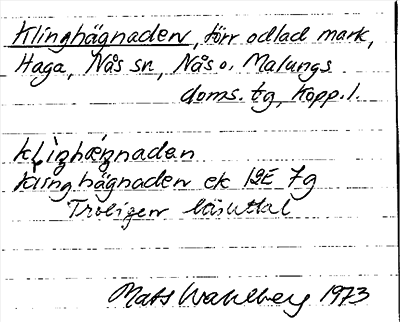 Klinghägnaden, förr odlad mark,
Haga, Nås sn, Nås o. Malungs
doms. tg, Kopp. l.
klìŋhæ̀ŋnadan
Klinghägnaden ek 12E 7g
Troligen läsuttal
Mats Wahlberg 1973